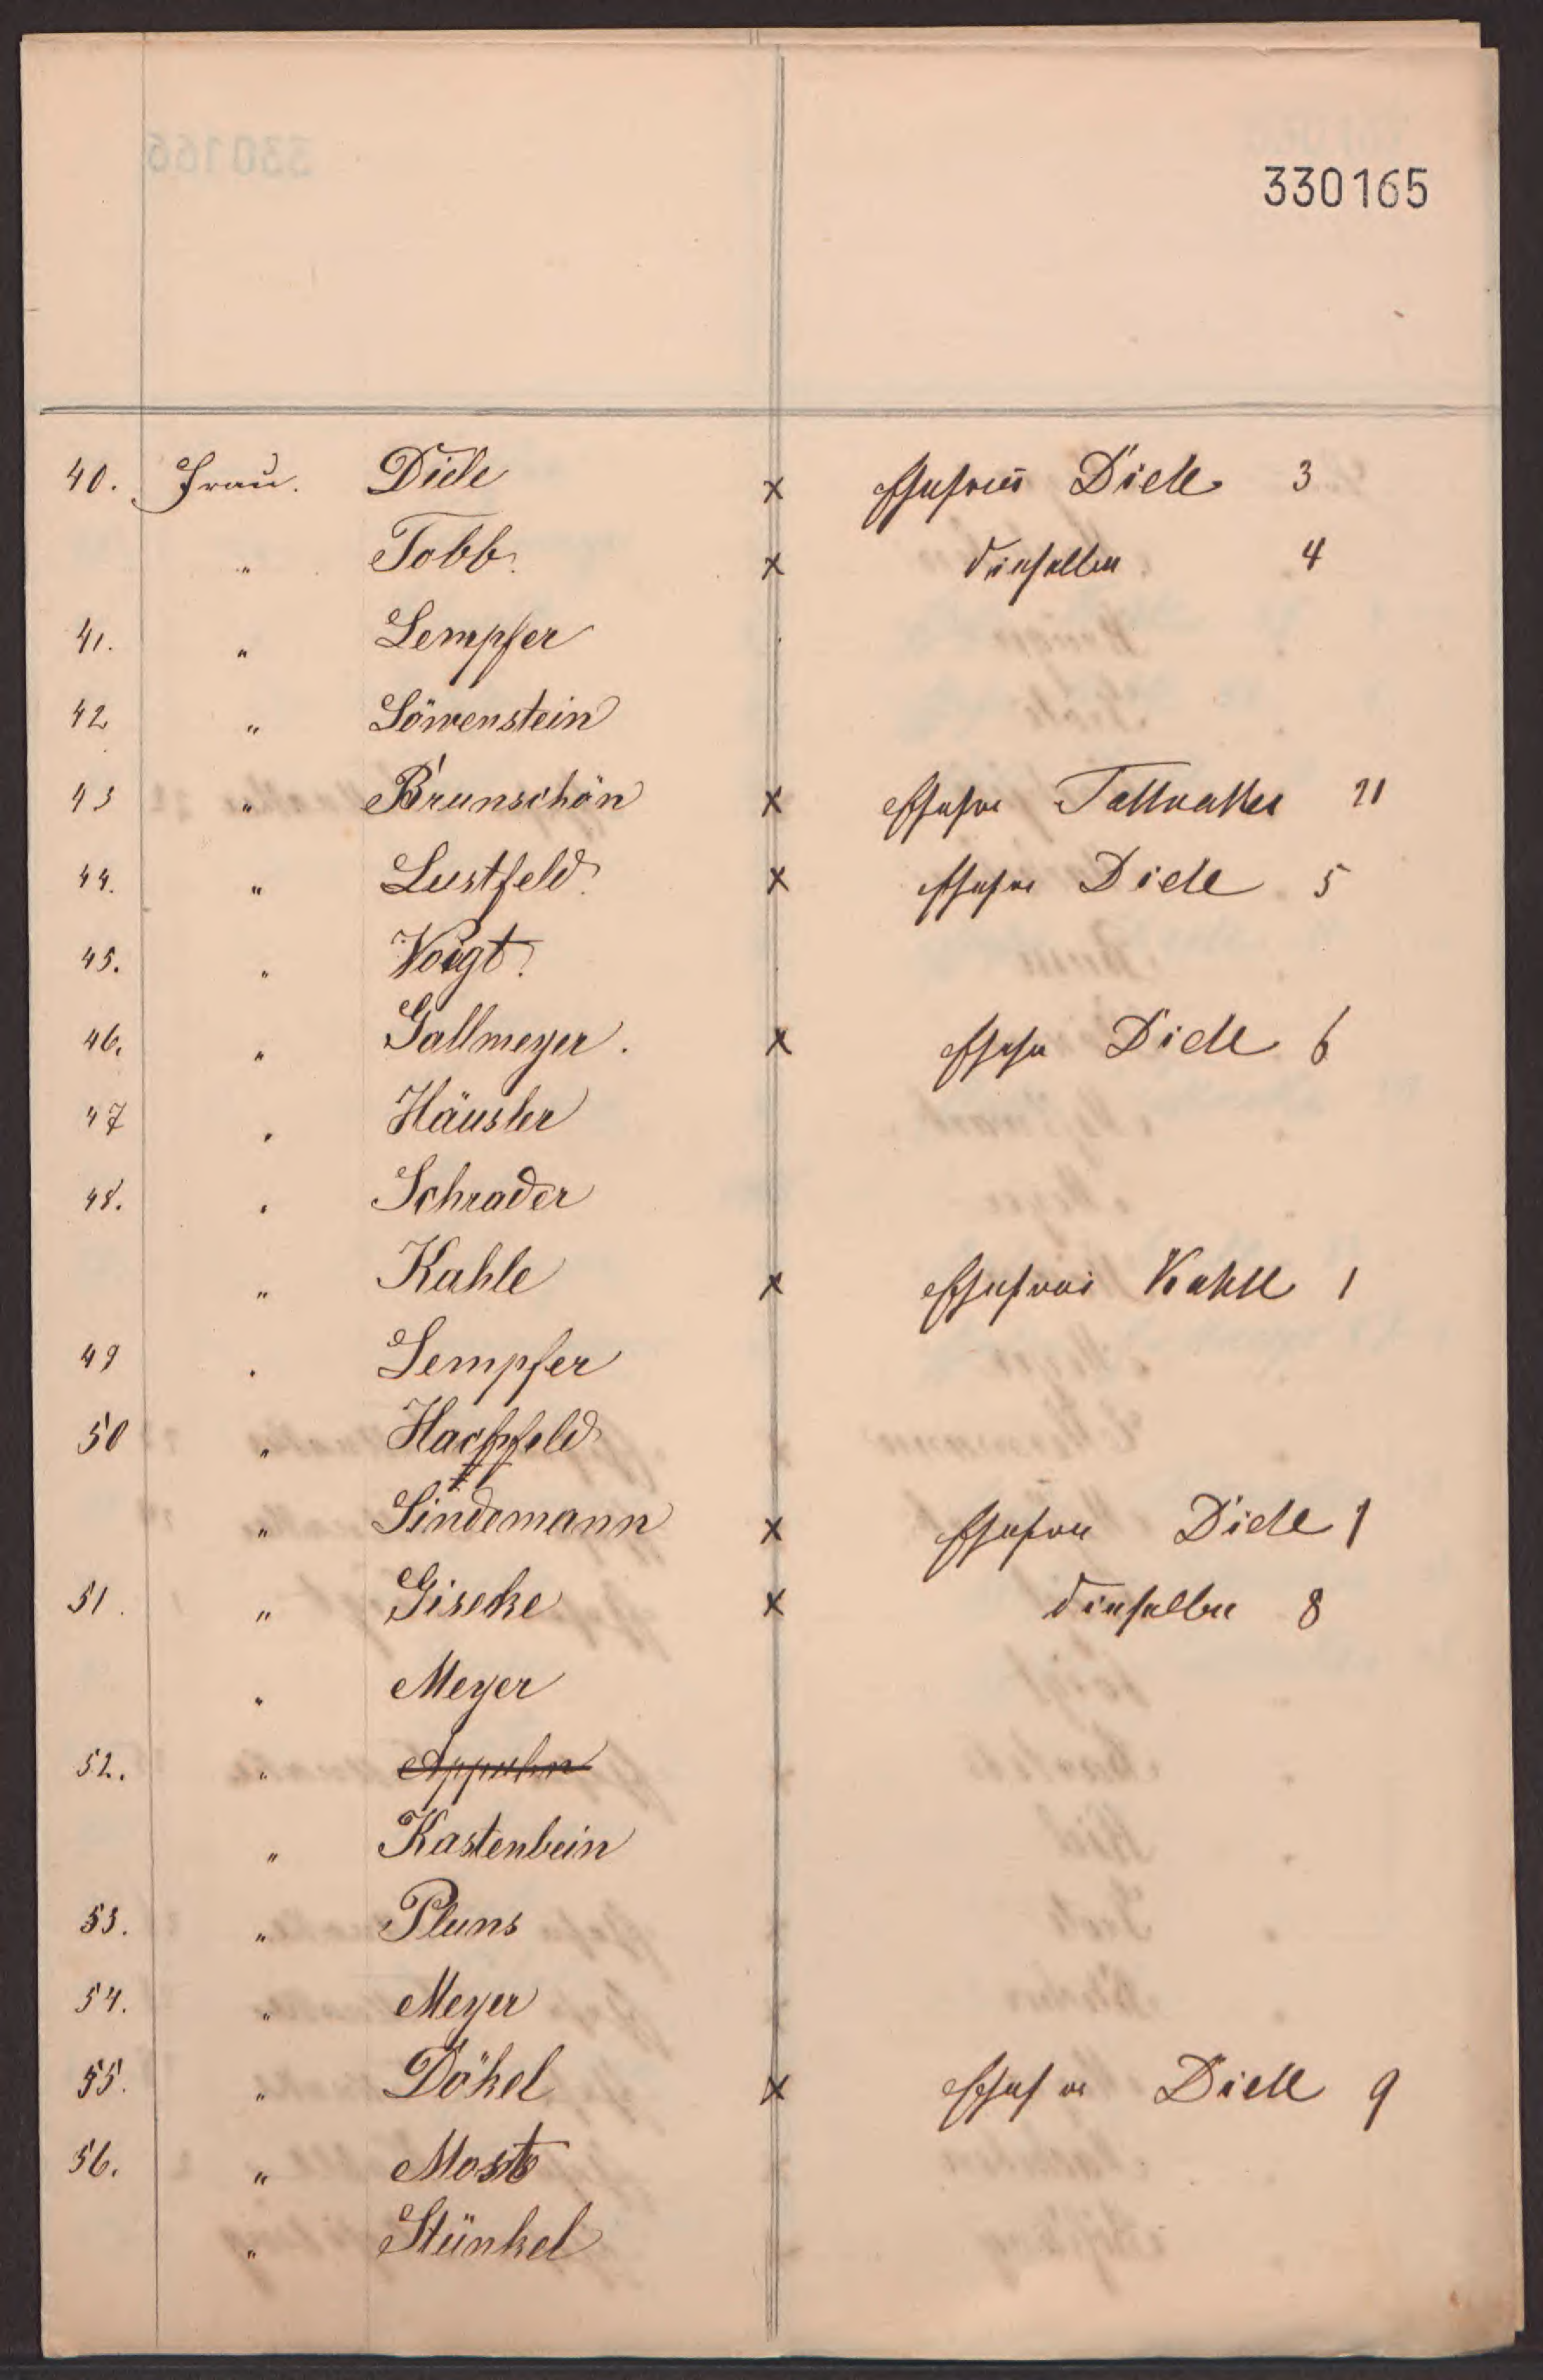 330165
40. Frau. Diele x Ehefrau Diele 3
" Tobb. x dieselbe 4
41. " Lempfer
42 " Löwenstein
43 " Brunschön x Ehefrau 21
44. " Lustfeld. x Ehefrau Diele 5
45. " Voigt.
46. " Gallmeyer. x Ehefr Diele 6
47 " Häusler
48. " Schrader
" Kahle x Ehefrau Kahle 1
49 " Lempfer
50 " Hachfeld
" Lindemann x Ehefrau Diele 7
51. " Gisecke x dieselbe 8
" Meyer
52. " Appuhn
" Kastenbein
53. " Pluns
54. " Meyer
55. " Dökel x Ehefr Diele 9
56. " Most
" Stünkel